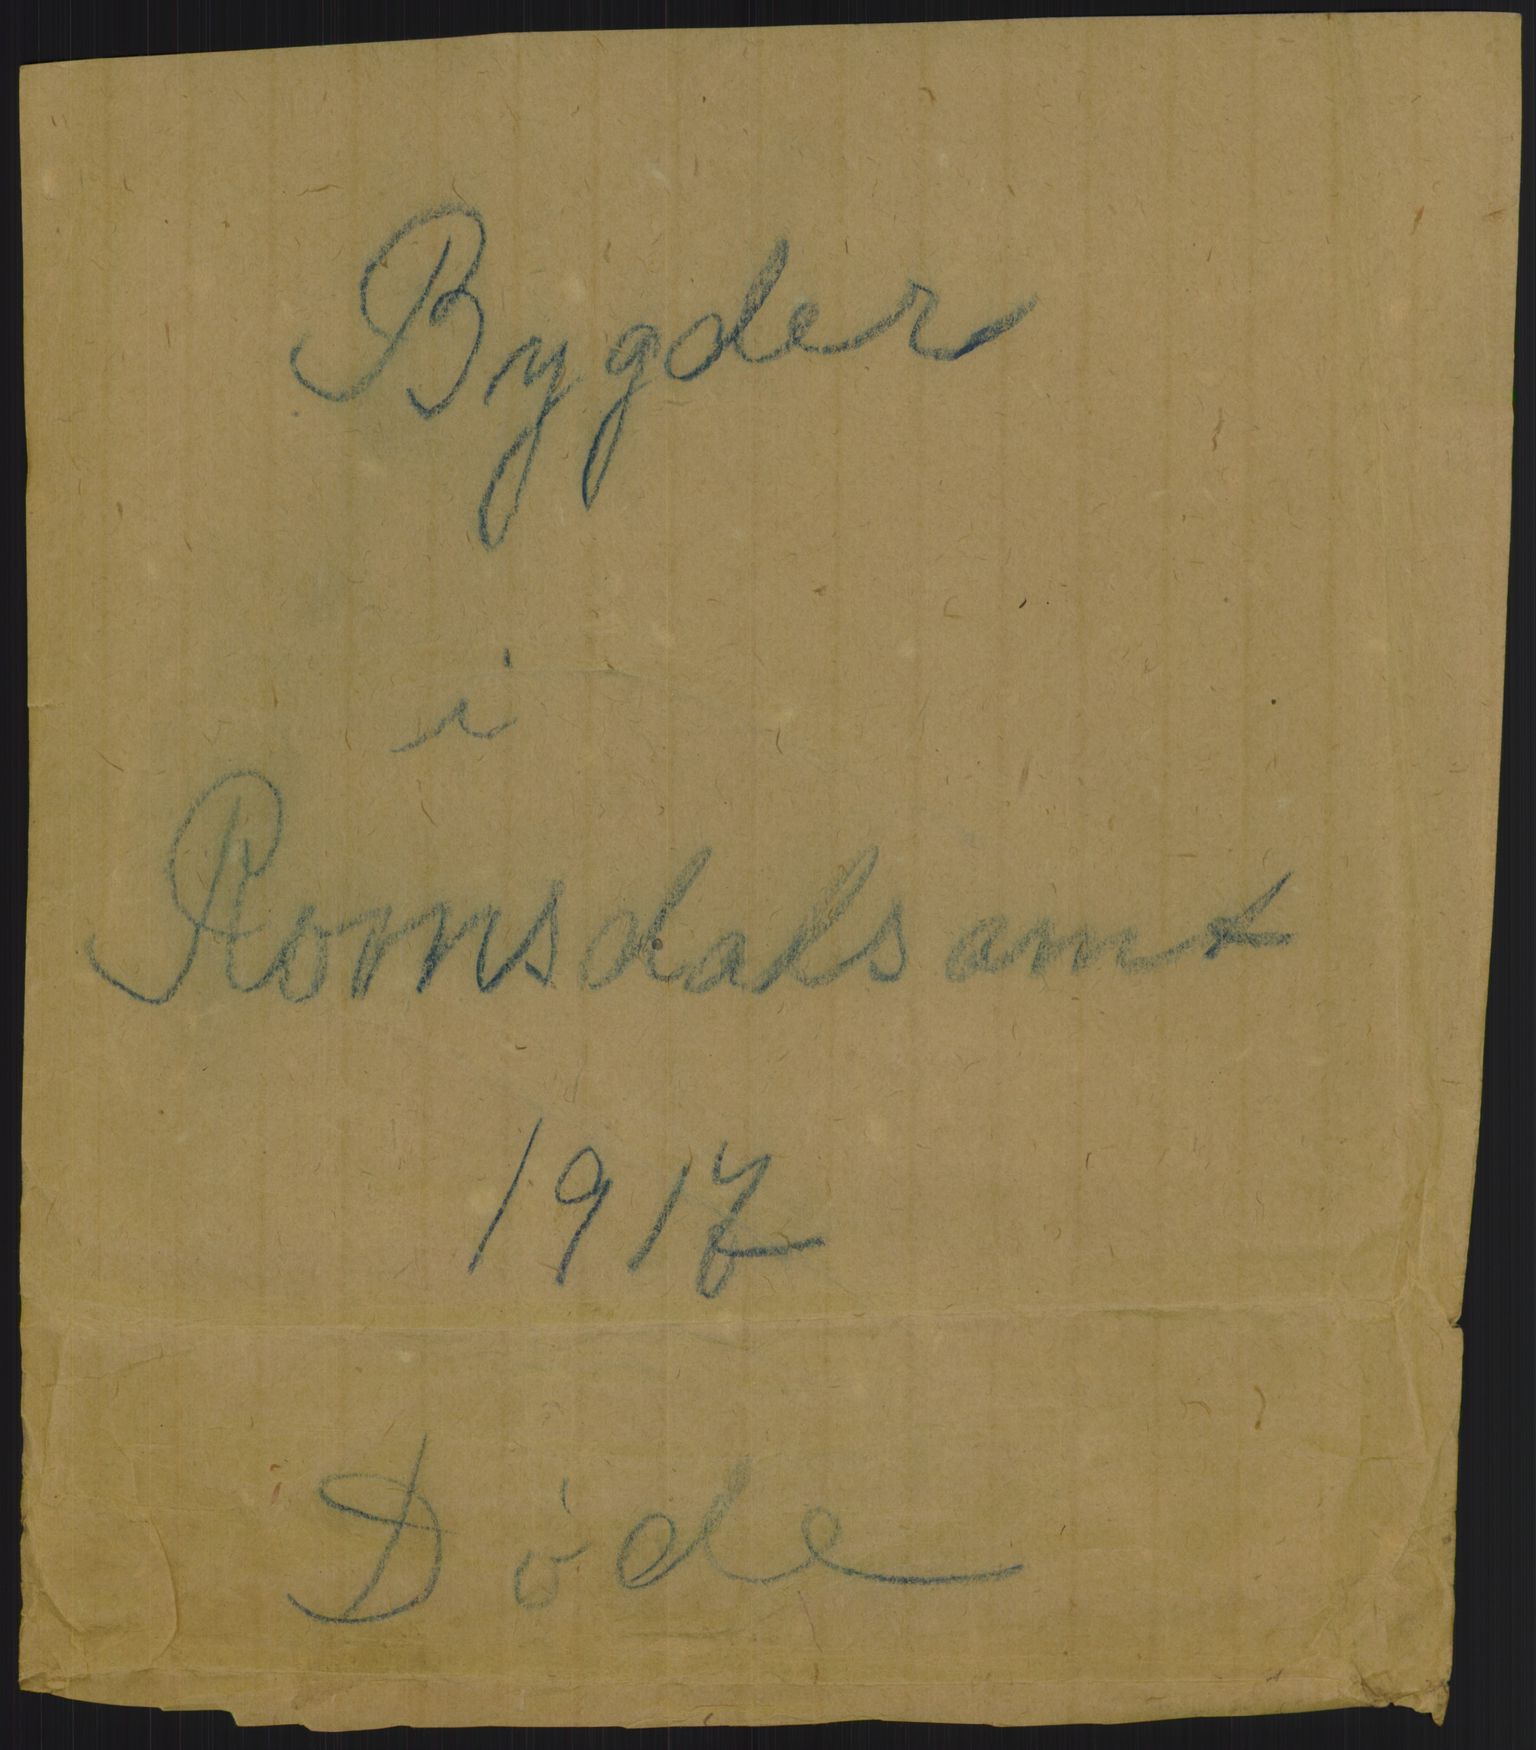 Bygder
i
Romsdals amt
1917
Døde